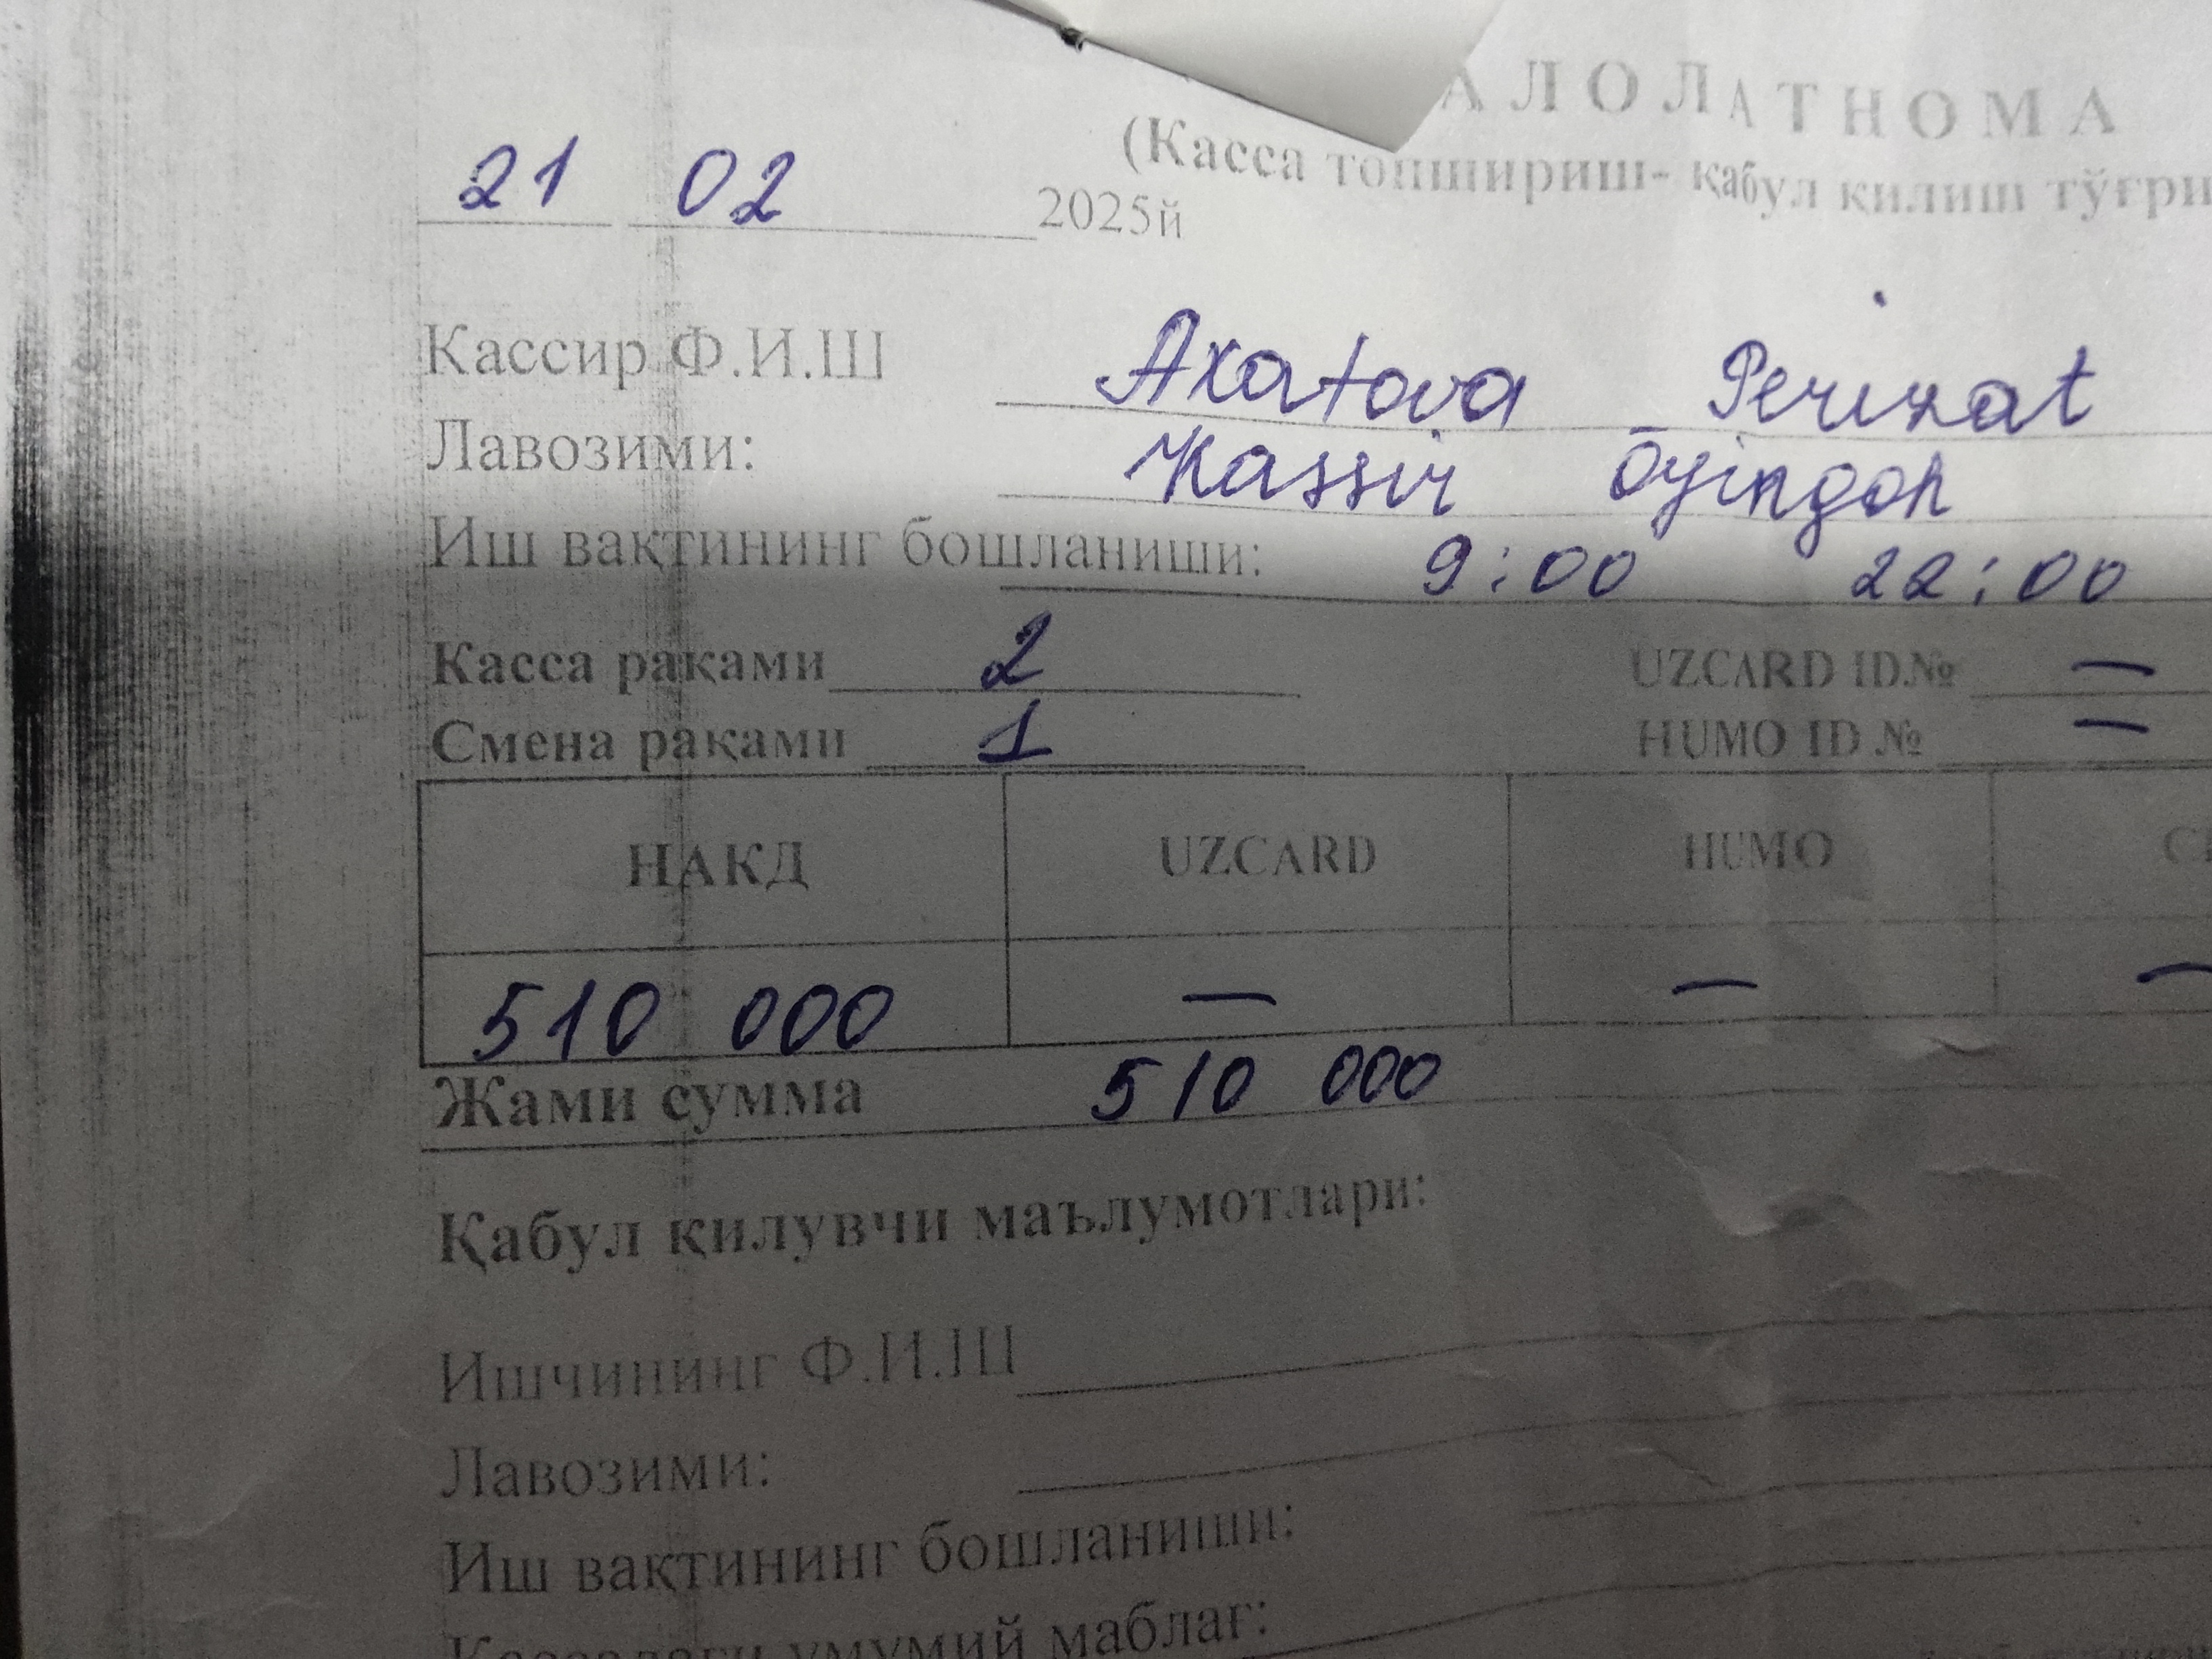 АЛОЛАТНОМА
(Касса топшириш- қабул қилиш тўғри
21 02 2025й
Кассир Ф.И.Ш Axatova Perizat
Лавозими: Kassir Oyingoh
Иш вақтининг бошланиши: 9:00 22:00
Касса рақами 2 UZCARD ID.№ —
Смена рақами 1 HUMO ID № —
НАКД UZCARD HUMO
510 000 — — —
Жами сумма 510 000
Қабул қилувчи маълумотлари:
Ишчининг Ф.И.Ш
Лавозими:
Иш вақтининг бошланиши:
Кассадаги умумий маблағ: